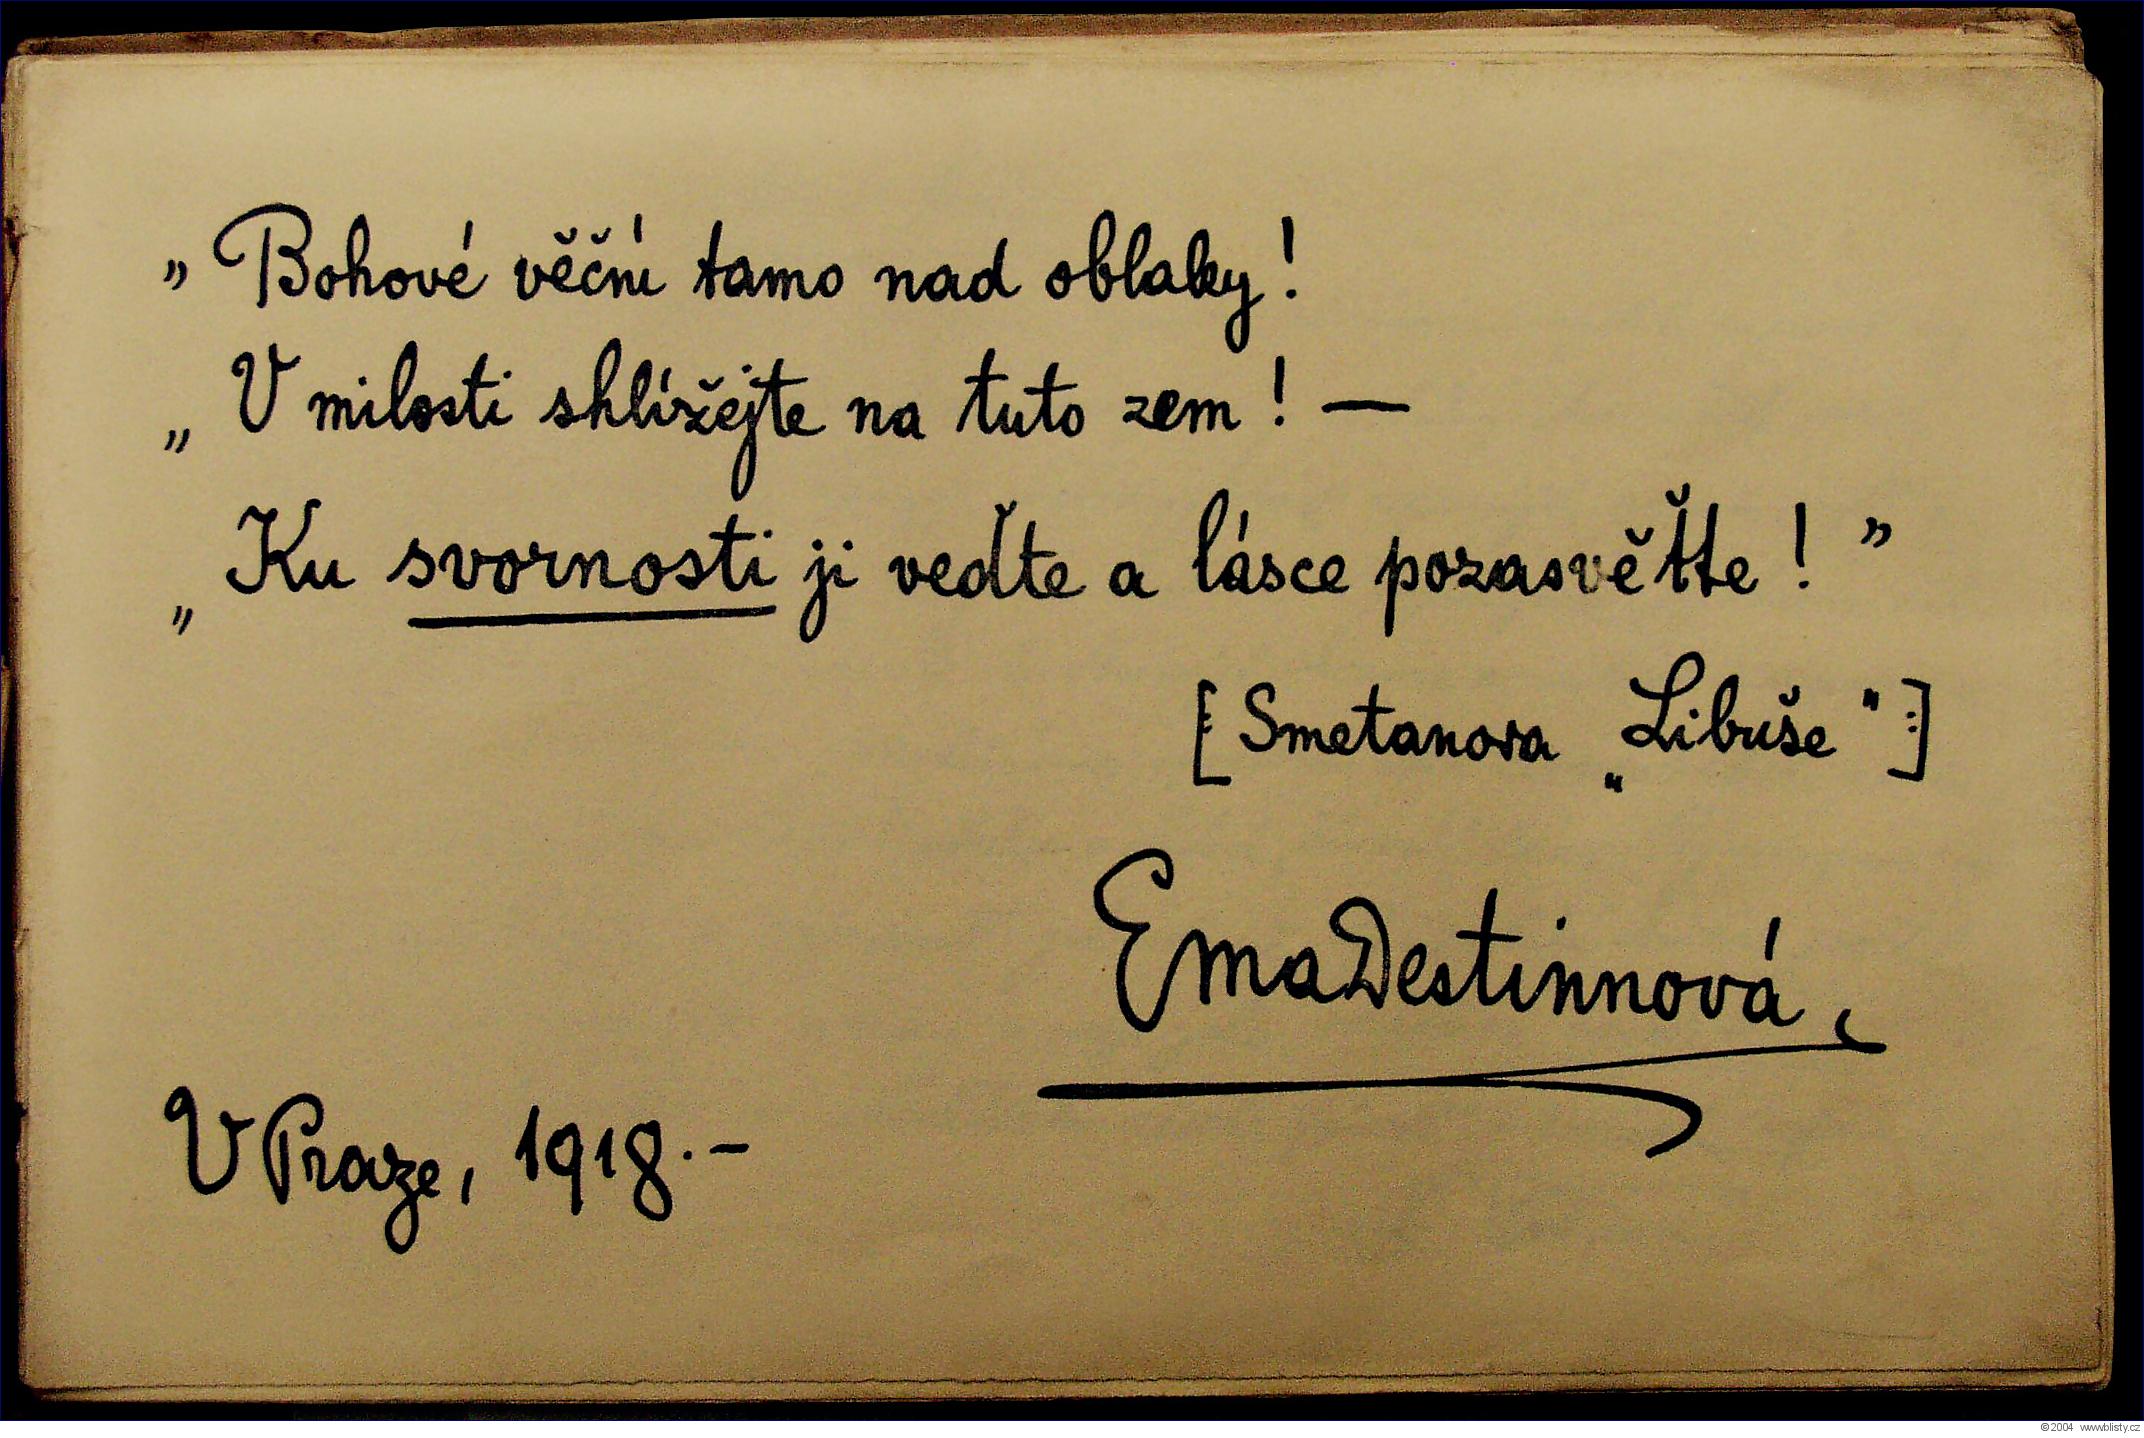 „ Bohové věční tamo nad oblaky!
„ V milosti shlížejte na tuto zem! —
„ Ku svornosti ji veďte a lásce pozasvěťte! ”
[ Smetanova „Libuše“ ]
Ema Destinnová
V Praze, 1918.–
©2004 www.blisty.cz